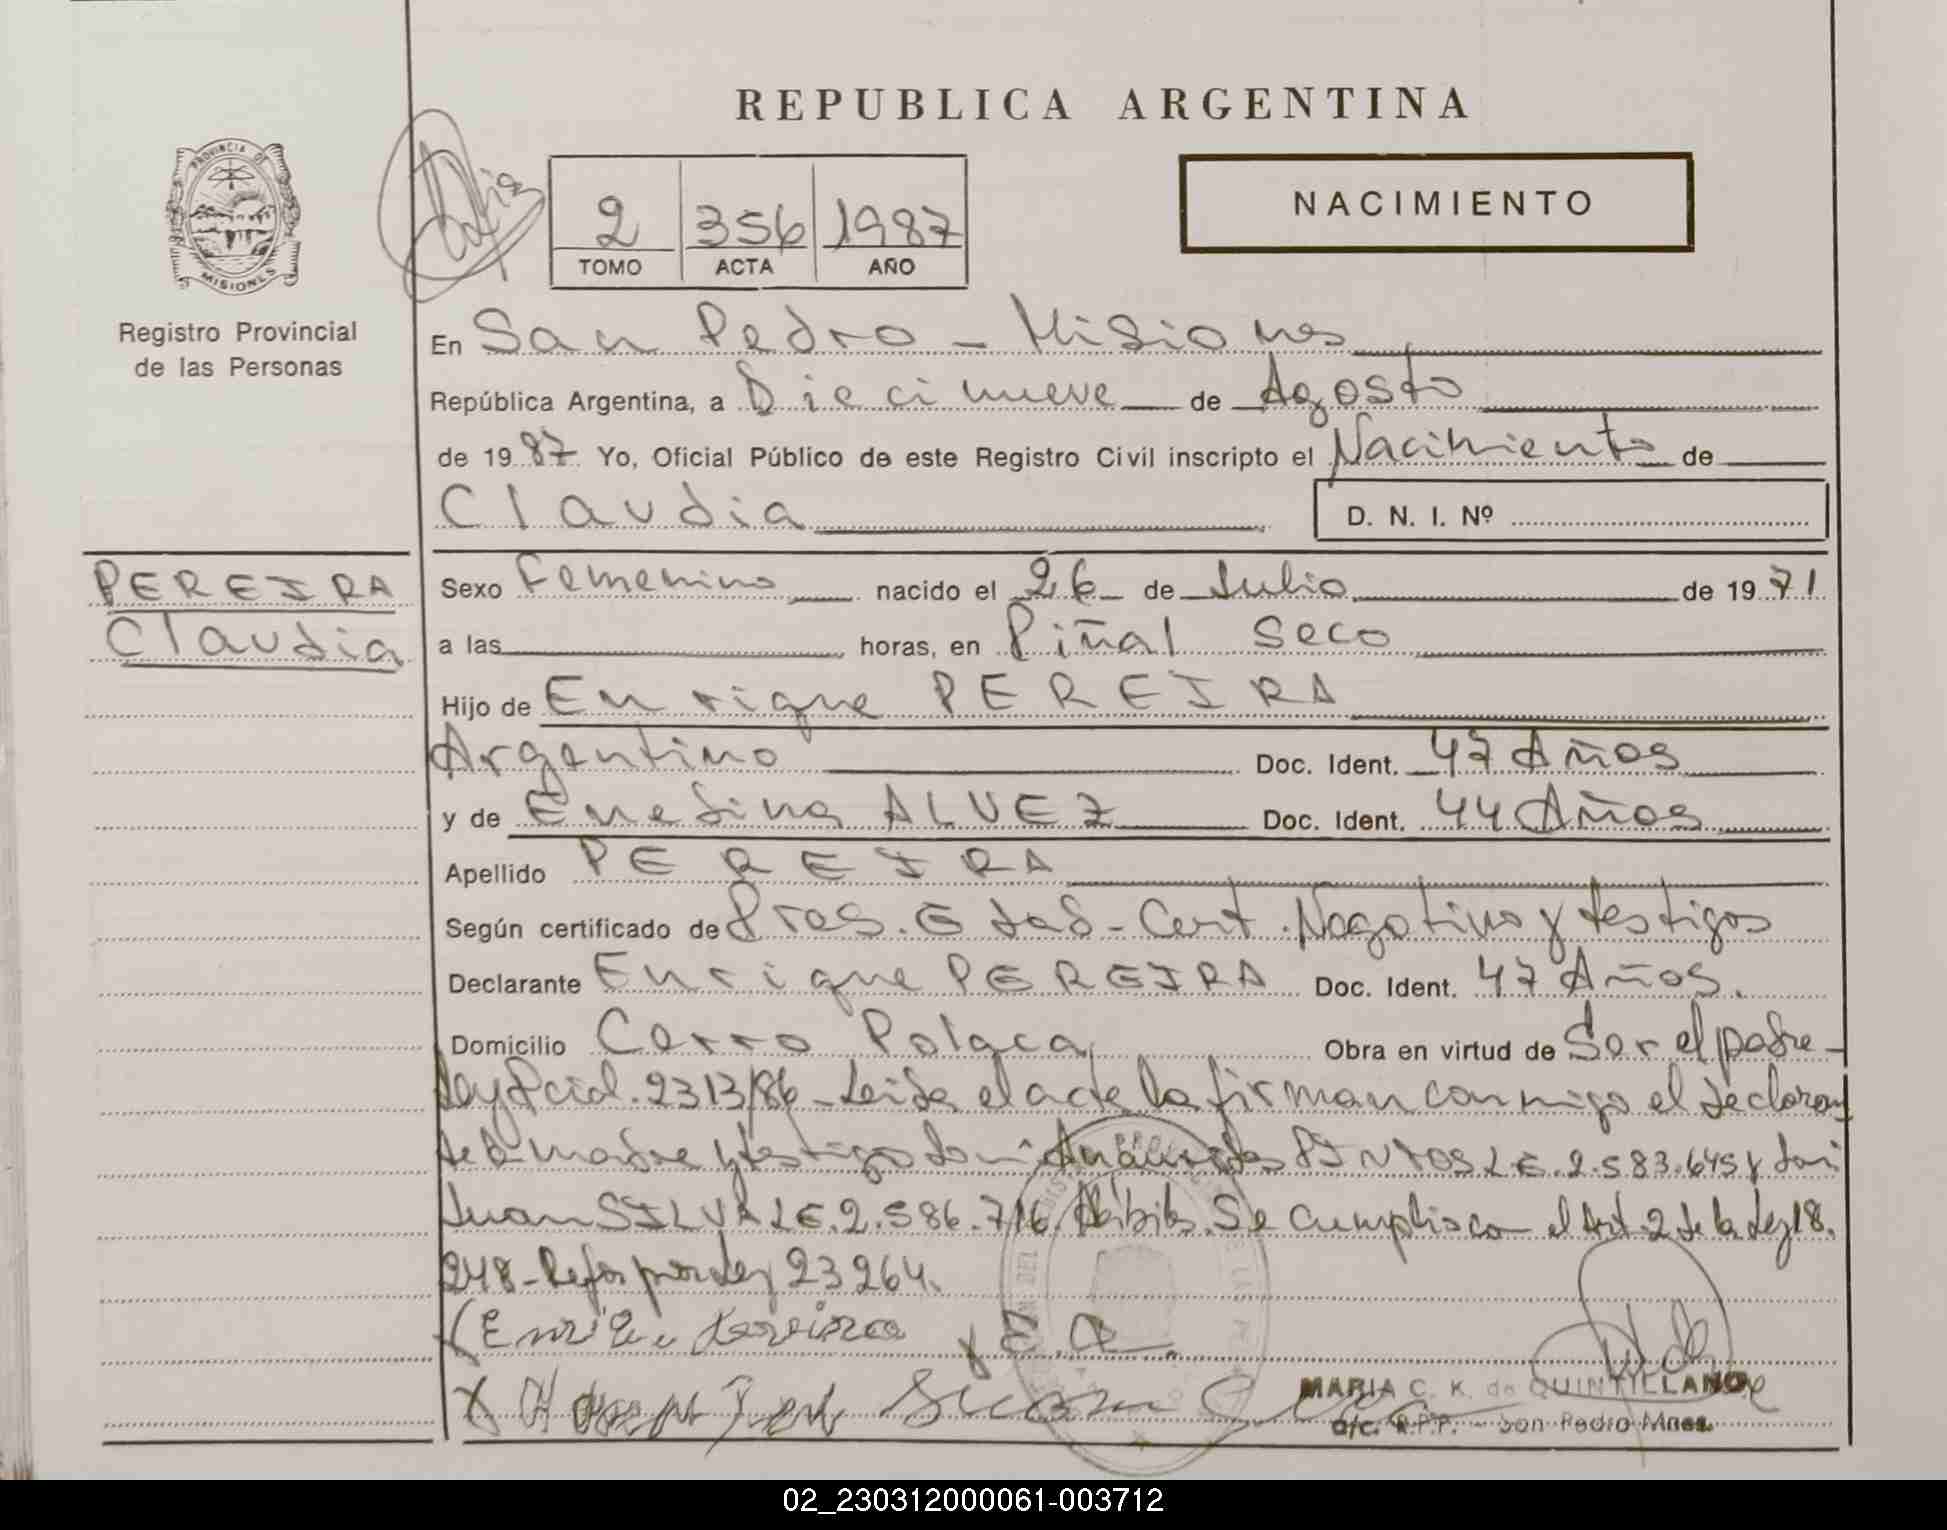 REPUBLICA ARGENTINA
PROVINCIA DE
MISIONES
Registro Provincial
de las Personas
2 356 1987
TOMO ACTA AÑO
NACIMIENTO
En San Pedro - Misiones
República Argentina, a Diecinueve de Agosto
de 1987 Yo, Oficial Público de este Registro Civil inscripto el Nacimiento de
Claudia D. N. I. Nº
PEREIRA
Claudia
Sexo Femenino nacido el 26 de Julio de 1971
a las horas, en Piñal Seco
Hijo de Enrique PEREIRA
Argentino Doc. Ident. 47 Años
y de Enedina ALVEZ Doc. Ident. 44 Años
Apellido PEREIRA
Según certificado de Pres. Edad - Cert. Negativo y testigos
Declarante Enrique PEREIRA Doc. Ident. 47 Años.
Domicilio Cerro Polaca Obra en virtud de Ser el padre -
Ley Pcial. 2313/86 - Leida el acta la firman conmigo el declaran
te la madre y testigos PINTOS L.E. 2.583.645 y
Juan SILVA L.E. 2.586.716. Hábiles. Se cumplio con el Art. 2 de la Ley 18.
248 - Refor por Ley 23264.
x E. A.
MARIA C. K. de QUINTILLAN
a/c. R.P.P. - San Pedro Mnes.
02_230312000061-003712